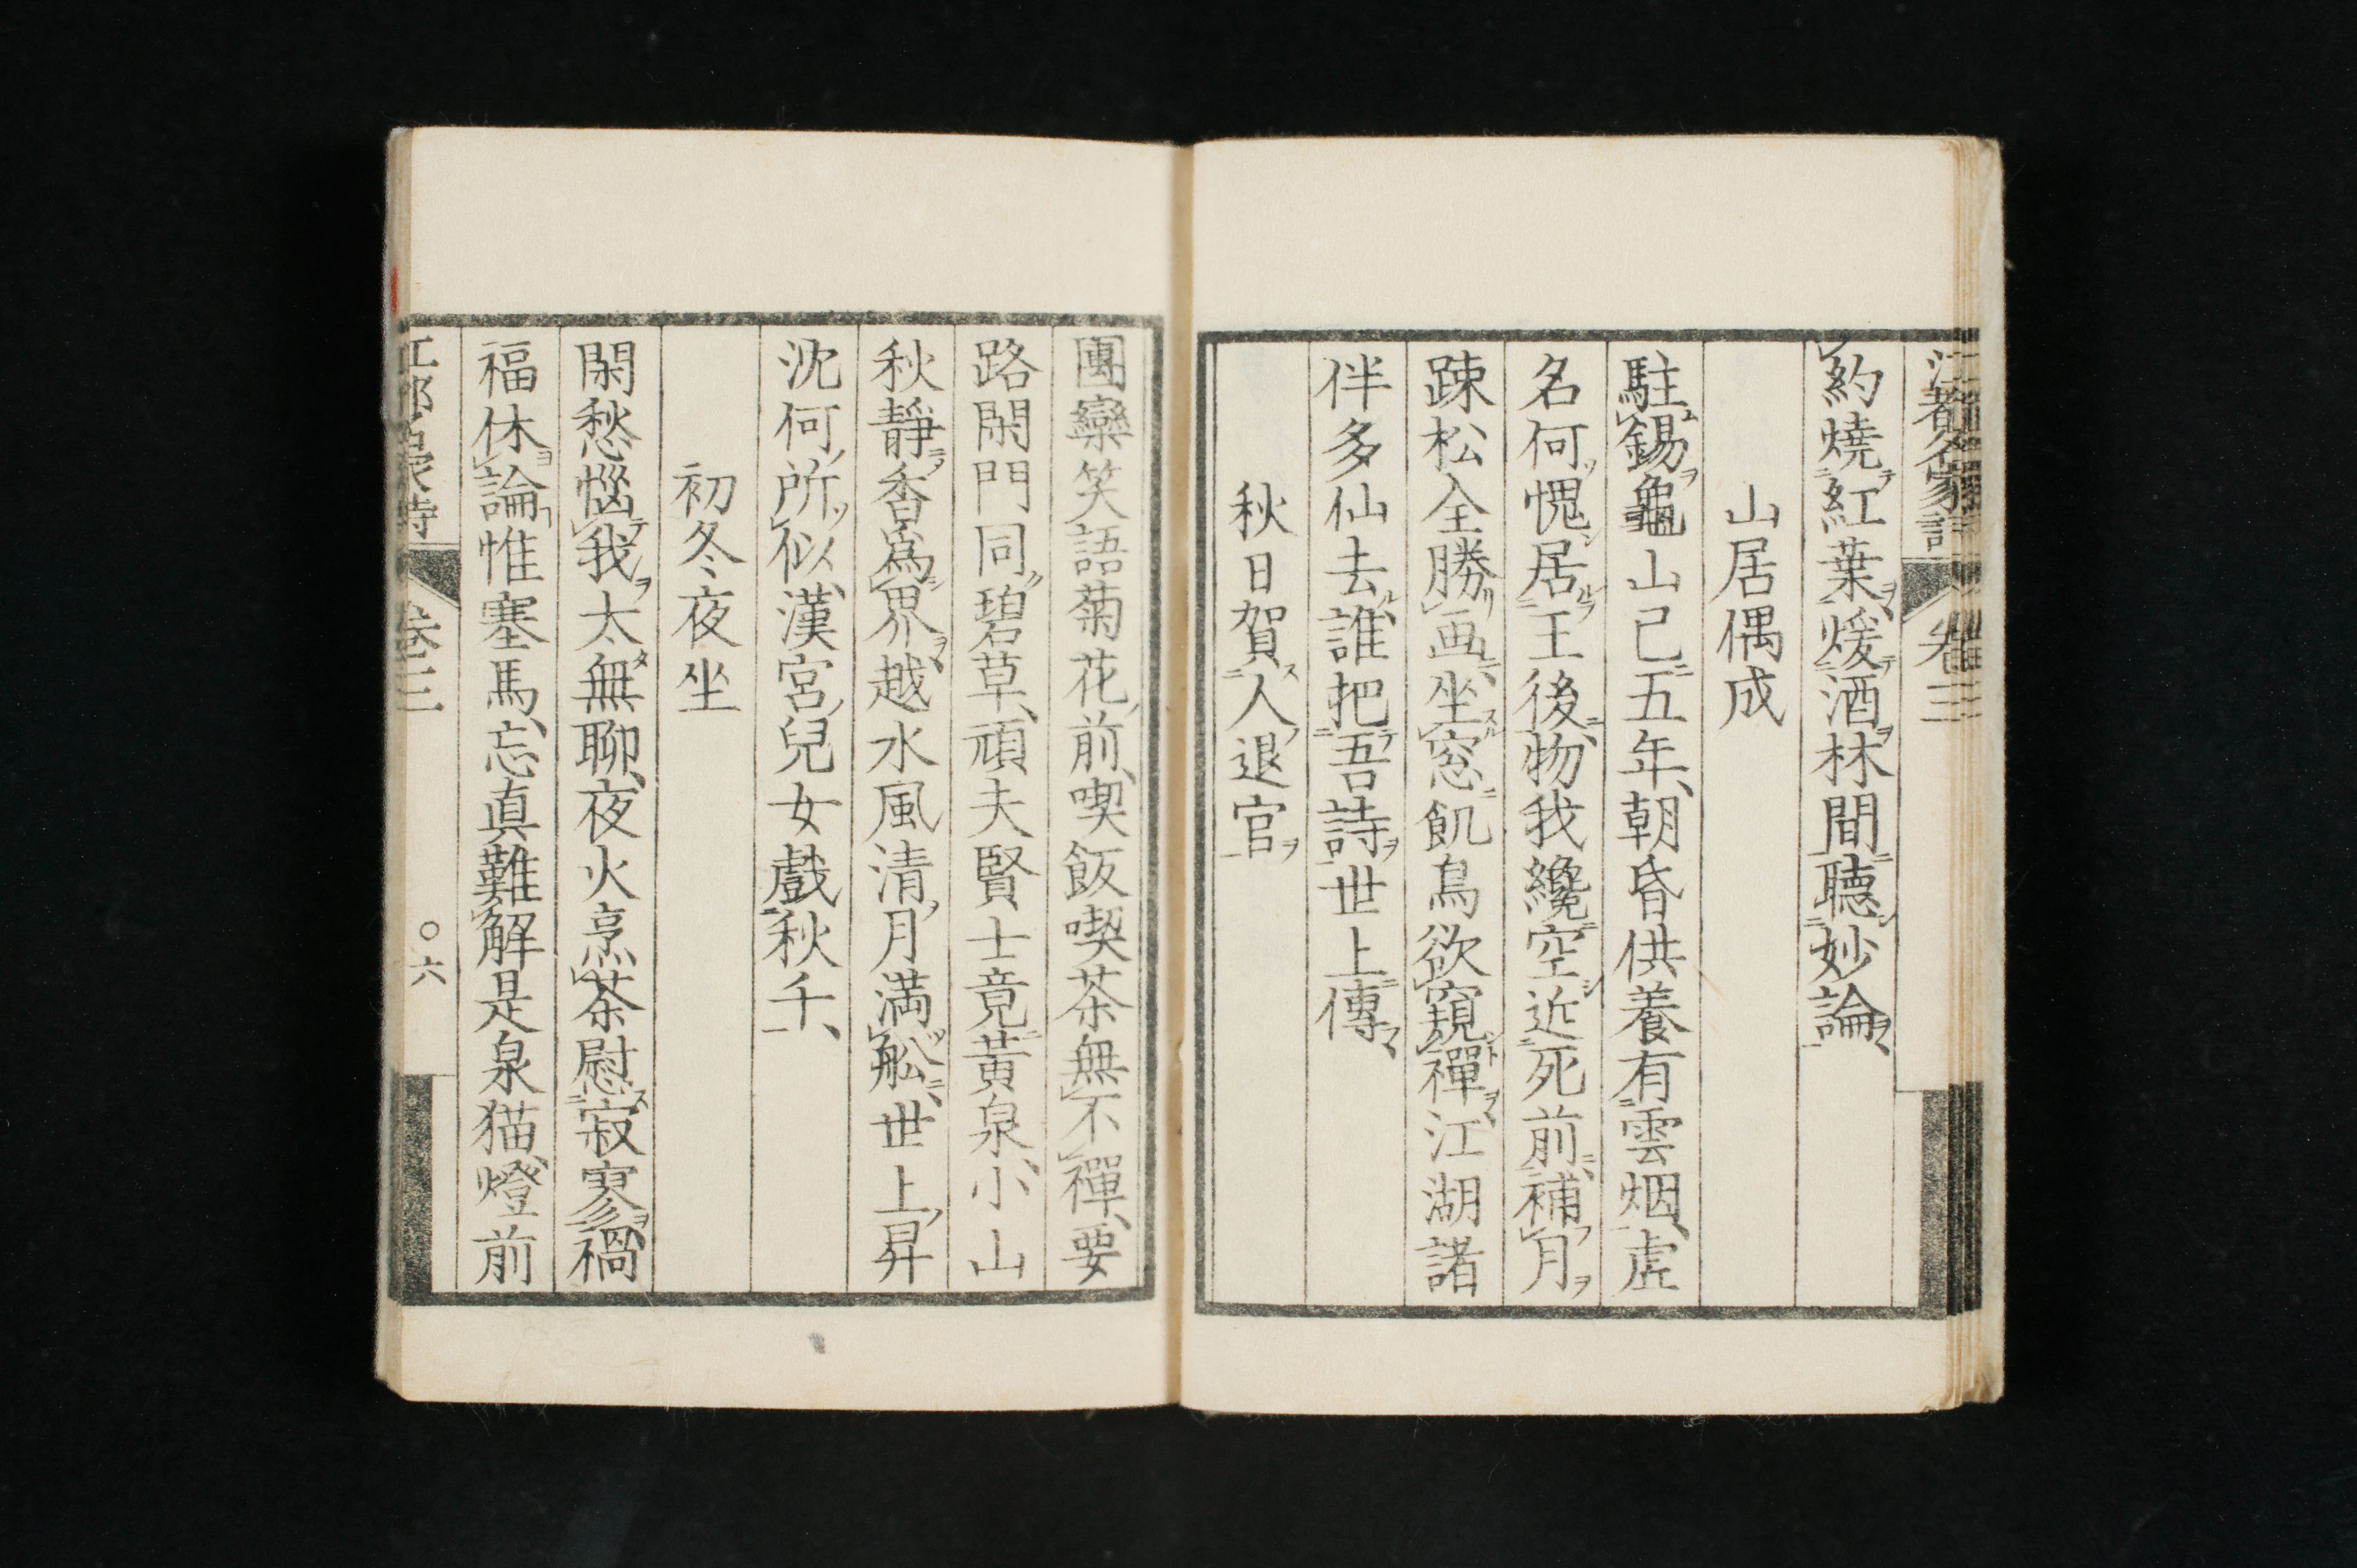 江都名家詩 卷三
約燒紅葉煖酒林間聽妙論
山居偶成
駐錫龜山已五年、朝昏供養有雲烟、虚
名何愧居王後、物我纔空近死前、補月
踈松全勝画、坐窓飢鳥欲窺禪、江湖諸
伴多仙去、誰把吾詩世上傳、
秋日賀人退官
團欒笑語菊花前、喫飯喫茶無不禪、要
路閑門同碧草、頑夫賢士竟黄泉、小山
秋靜香為界、越水風清月満舩、世上昇
沈何所似、漢宮兒女戲秋千、
初冬夜坐
閑愁惱我太無聊、夜火烹茶慰寂寥、禍
福休論惟塞馬、忘真難解是泉猫、燈前
江都名家詩 卷三 〇六